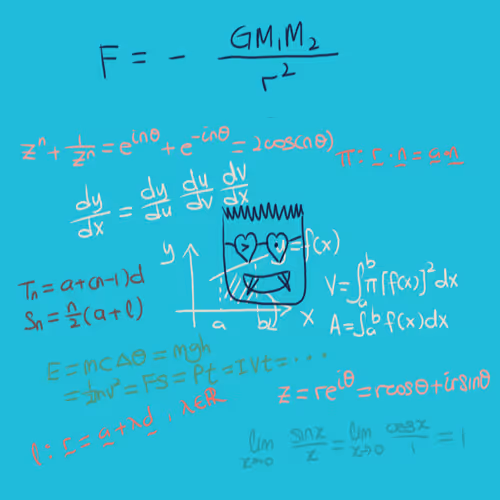 F = - GM₁M₂ / r²
zⁿ + 1/zⁿ = e^{inθ} + e^{-inθ} = 2cos(nθ)
π: r · n = a · n
dy/dx = dy/du du/dv dv/dx
y
y=f(x)
a
b
x
Tₙ = a+(n-1)d
Sₙ = n/2(a+l)
V=∫ₐᵇ π[f(x)]²dx
A=∫ₐᵇ f(x)dx
E = mcΔθ = mgh
= ½mv² = Fs = Pt = IVt = ...
z = re^{iθ} = rcosθ+irsinθ
l: r = a + λd , λ∈ℝ
lim x→0 sinx/x = lim x→0 cosx/1 = 1